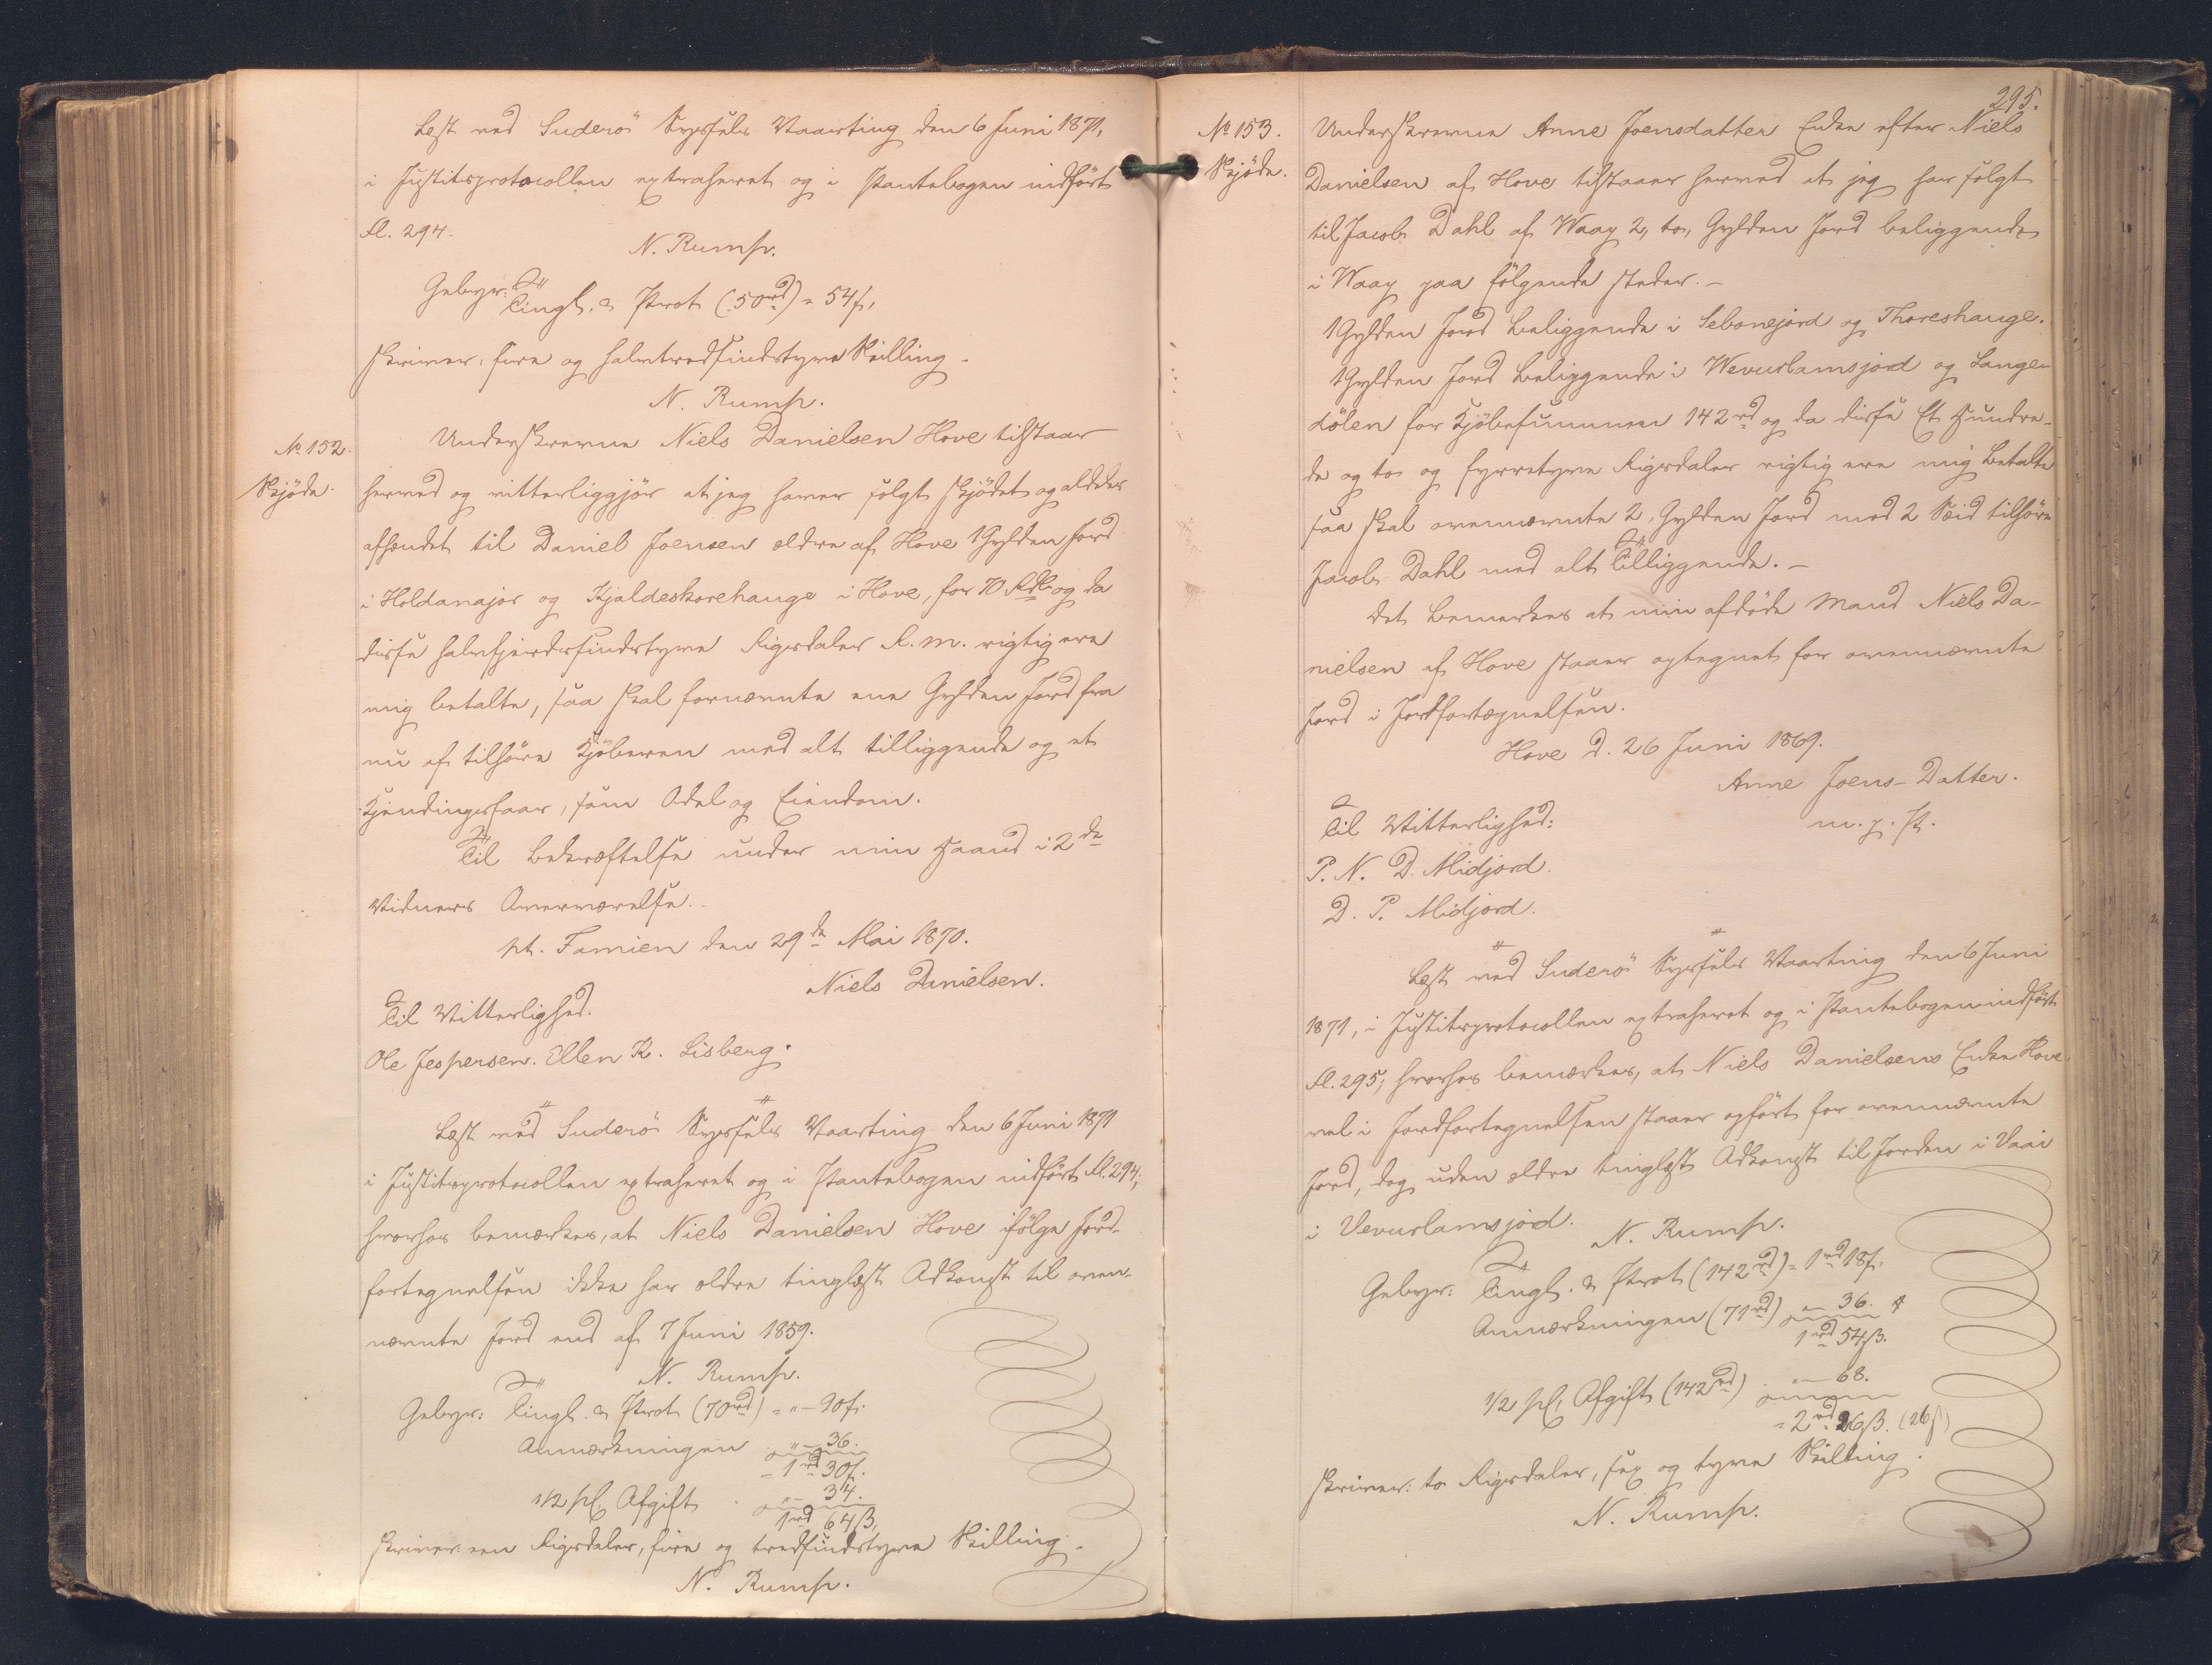 Læst ved Suderö Syssels Vaarting den 6 Juni 1871,
i Justitsprotocollen extraheret og i Pantebogen indført
fl. 294.
N. Rump.
Gebyr: Tingl. & Prot (50rd) = 54ſ,
skriver: fire og halvtredsindstyve Skilling.
N. Rump.
No 152.
Skjöde.
Underskrevne Niels Danielsen Hove tilstaar
herved og vitterliggjör at jeg haver solgt skjödet og aldeles
afhændet til Daniel Joensen ældre af Hove 1 Gylden Jord
i Holdanajor og Kjaldeskorehauge i Hove, for 70 Rdl. og da
disse halvfjerdsindstyve Rigsdaler R.M. rigtig ere
mig betalte, saa skal fornævnte ene Gylden Jord fra
nu af tilhöre Kjöberen med alt tilliggende og et
Kjendingsfaar, som Odel og Eiendom.
Til Bekræftelse under min Haand i 2de
Vidners Overværelse.
pt. Famien den 29de Mai 1870.
Niels Danielsen.
Til Vitterlighed.
Ole Jespersen. Ellen K. Lisberg.
Læst ved Suderö Syssels Vaarting den 6 Juni 1871
i Justitsprotocollen extraheret og i Pantebogen indført fl. 294;
hvorhos bemærkes, at Niels Danielsen Hove ifölge Jord-
fortegnelsen ikke har ældre tinglæst Adkomst til oven-
nævnte Jord end af 7 Juni 1859.
N. Rump.
Gebyr: Tingl. & Prot (70rd) = " — 90ſ.
Anmærkningen " — 36.
= 1rd 30ſ.
1/2 pC. Afgift " — 34.
1rd 64ß,
skriver: een Rigsdaler, fire og tredsindstyve Skilling.
N. Rump.
295.
No 153.
Skjöde.
Underskrevne Anne Joensdatter Enke efter Niels
Danielsen af Hove tilstaaer herved at jeg har solgt
til Jacob Dahl af Waag 2, to, Gylden Jord beliggende
i Waag paa fölgende steder. –
1 Gylden Jord beliggende i Sebonejord og Thoreshauge.
1 Gylden Jord beliggende i Wevurlamsjord og Lange-
dölen for Kjöbesummen 142rd og da disse Et Hundre-
de og to og fyrretyve Rigsdaler rigtig ere mig betalte
saa skal ovennævnte 2, Gylden Jord med 2 Sæid tilhöre
Jacob Dahl med alt Tilliggende. –
Det bemerkes at min afdöde Mand Niels Da-
nielsen af Hove staaer optegnet for ovennævnte
Jord i Jordfortegnelsen.
Hove D. 26 Juni 1869.
Anne Joens-Datter.
m. p. P.
Til Vitterlighed:
P. N. D. Midjord.
D. P. Midjord.
Læst ved Suderö Syssels Vaarting den 6 Juni
1871, i Justitsprotocollen extraheret og i Pantebogen indført
fl. 295, hvorhos bemærkes, at Niels Danielsens Enke Hove
vel i Jordfortegnelsen staaer opfört for ovennævnte
Jord, dog uden ældre tinglæst Adkomst til Jorden i Vaai
i Vevurlamsjord.
N. Rump.
Gebyr: Tingl. & Prot (142rd) = 1rd 18ſ.
Anmærkningen (71rd) " — 36.
1rd 54ß.
1/2 pC. Afgift (142rd) " — 68.
= 2rd 26ß. (26ſ)
skriver: to Rigsdaler, sex og tyve Skilling.
N. Rump.